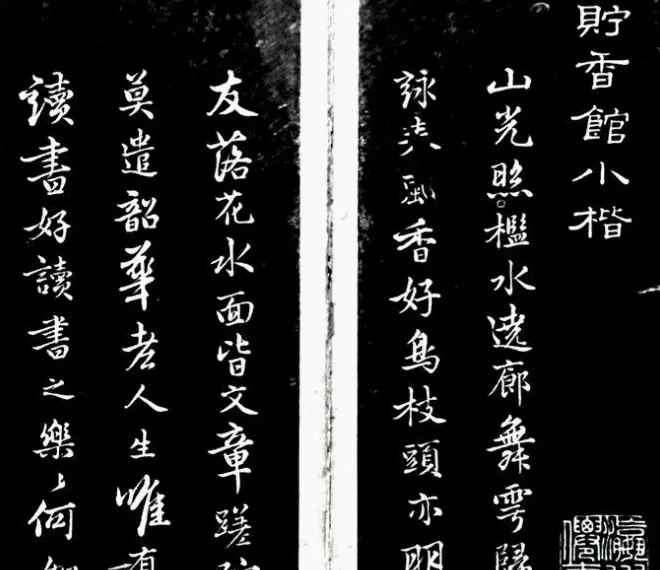 貯香館小楷
山光照檻水遶廊舞雩歸
詠風香好鳥枝頭亦朋
友落花水面皆文章蹉
莫遣韶華老人生唯有
讀書好讀書之樂々何